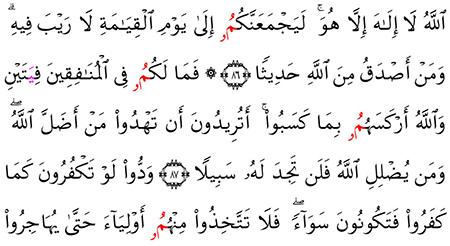 ٱللَّهُ لَا إِلَٰهَ إِلَّا هُوَۚ لَيَجْمَعَنَّكُمُۥ إِلَىٰ يَوْمِ ٱلْقِيَٰمَةِ لَا رَيْبَ فِيهِۗ
وَمَنْ أَصْدَقُ مِنَ ٱللَّهِ حَدِيثًا ۝٨٦ ۞ فَمَا لَكُمُۥ فِى ٱلْمُنَٰفِقِينَ فِيَتَيْنِ
وَٱللَّهُ أَرْكَسَهُمُۥ بِمَا كَسَبُوٓا۟ۚ أَتُرِيدُونَ أَن تَهْدُوا۟ مَنْ أَضَلَّ ٱللَّهُۖ
وَمَن يُضْلِلِ ٱللَّهُ فَلَن تَجِدَ لَهُۥ سَبِيلًا ۝٨٧ وَدُّوا۟ لَوْ تَكْفُرُونَ كَمَا
كَفَرُوا۟ فَتَكُونُونَ سَوَآءًۖ فَلَا تَتَّخِذُوا۟ مِنْهُمُۥ أَوْلِيَآءَ حَتَّىٰ يُهَاجِرُوا۟